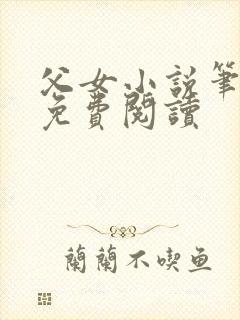 父女小说筆
免費閱讀
蘭蘭不喫鱼